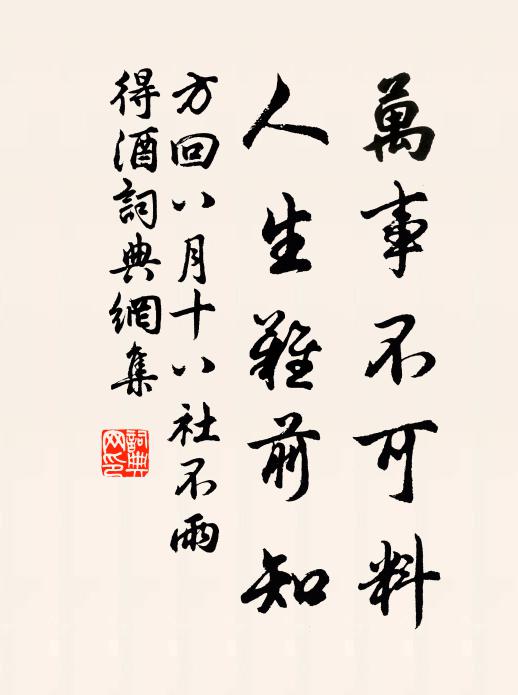 萬事不可料
人生難前知
方回八月十八社不雨
得酒詞典網集
詞典網印